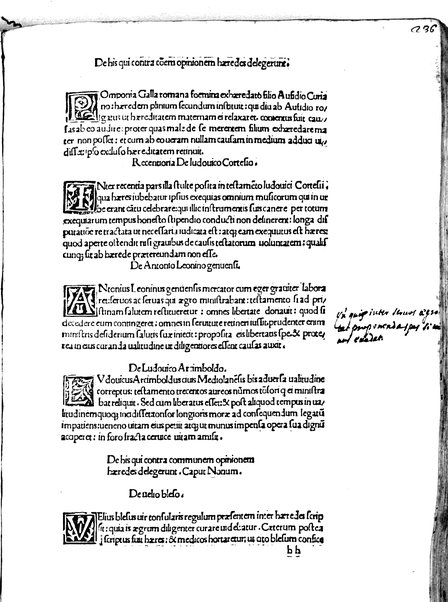 236
De his qui contra cõem opinionem hæredes delegerunt.
POmponia Galla romana fœmina exhæredato filio Aufidio Curia
no: hæredem plinium secundum instituit: qui diu ab Aufidio ro/
gatus ut hæreditatem maternam ei relaxaret, contentus fuit cau/
sas ab eo audire: propter quas male de se merentem filium exhæredare ma
ter non posset: et cum ab eo ueram nullam causam in medium adduci ui/
disset: ipso excluso hæreditatem retinuit.
Recentiora De ludouico Cortesio.
INter recentia pars illa stulte posita in testamẽto ludouici Cortesii:
qua hæres iubebatur ipsius exequias omnium musicorum qui in ur
be erant cãtu celebrare: qui illic instrumentis suis canere per totum
exequiarum tempus honesto stipendio conducti non definerent: longa dis
putatiõe retractata ut necessaria iudicata est: atq; eam exequutus est hæres:
quod aperte ostendit nisi grauibus de causis testatorum uoluntatem: qualis
cunq; sit ab hærede prætereundam non esse.
De Antonio Leonino genuensi.
ANtonius Leoninus genuensis mercator cum eger grauiter labora
ret: seruos ac seruas qui ægro ministrabant: testamento si ad pri/
stinam salutem restitueretur: omnes libertate donauit: quod si
decedere eum contingeret: omnes in seruitute retineri iussit, prudenter enim
ministris desiderium salutis suæ iniecit: proposita eis libertatis spe: & prote/
rea in eius curanda ualitudine ut diligentiores essent causas auxit.
De Ludouico Arcimboldo.
LVdouicus Arcimboldus ciuis Mediolanẽsis bis aduersa ualitudine
correptus: testamento trecentos aureos nũmos tõsori q ei ministra
bat reliquit. Sed cum liberatus esset: & post aliquod tempus in ua/
litudinem
impatiens: ueneno uitam eius petiit: atq; ut munus impensa opera sua dignũ
acciperet: in foro fracta ceruice uitam amisit.
De his qui contra communem opinionem
hæredes delegerunt. Caput Nonum.
De uelio bleso.
VElius blesus uir consularis regulum præsentem inter hæredes scrip
sit: quia is ægrum diligenter curare uidebatur. Cæterum postea
q scriptus fuit hæres: & medicos hortaretur: ut qto blesum confice
b b